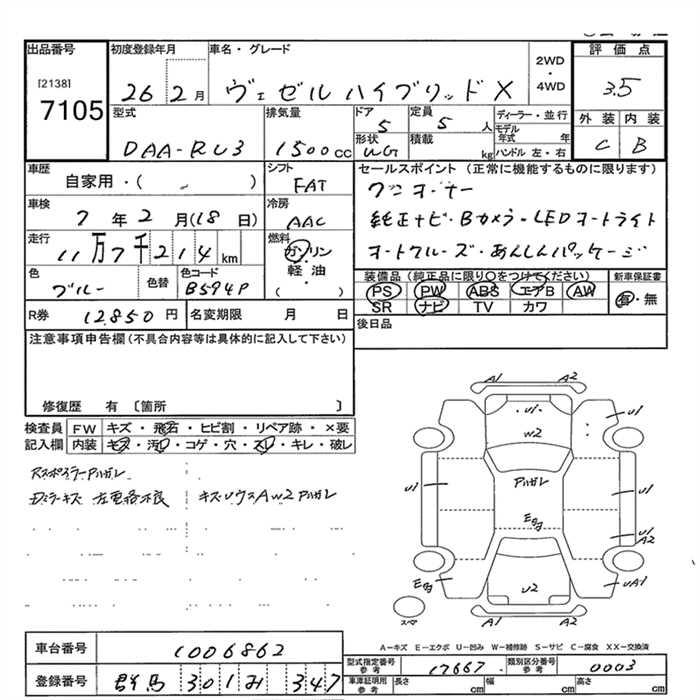 出品番号 初度登録年月 車名・グレード 評価点
[2138]
7105
26 2月 ヴェゼルハイブリッドX
2WD
・
4WD
3.5
型式 排気量 ドア 定員 ディーラー・並行
DAA-RU3 1500cc 5 5人
モデル年式 年
形状 積載
WG kg
ハンドル 左・右
外装 内装
C B
車歴 シフト セールスポイント (正常に機能するものに限ります)
自家用・( ) FAT ワンオーナー
車検 冷房
7年2月(18日) AAC 純正ナビ・Bカメラ・LEDオートライト
走行 燃料
11万7千214km ガソリン・軽油・( ) オートクルーズ・あんしんパッケージ
色 色替 色コード
ブルー B594P
装備品 (純正品に限り○をつけてください) 新車保証書
PS PW ABS エアB AW 有・無
SR ナビ TV カワ
R券 12850円 名変期限 月 日 後日品
注意事項申告欄(不具合内容等は具体的に記入して下さい)
修復歴 有 〔箇所 〕
検査員 FW キズ・飛石・ヒビ割・リペア跡・×要
記入欄 内装 キズ・汚レ・コゲ・穴・スレ・キレ・破レ
A1 A2
U1 U1
W2
U1 U1
U1
A2
E
E UA1
U2
A1 A2
スペア
A-キズ E-エクボ U-凹み W-補修跡 S-サビ C-腐食 XX-交換済
車台番号 1006862
登録番号 群馬 301 み 347
型式指定番号 参考 17667 類別区分番号 参考 0003
車庫証明用 参考 長さ cm 幅 cm 高さ cm